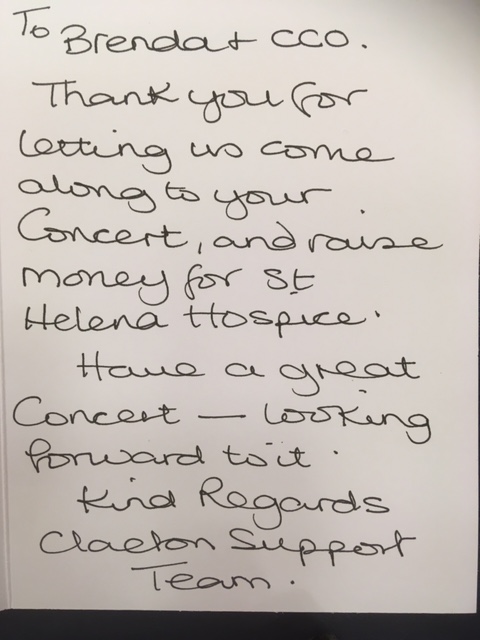 To Brenda + CCO.
Thank you for
letting us come
along to your
Concert, and raise
money for St
Helena Hospice.
Have a great
Concert — looking
forward to it.
Kind Regards
Clacton Support
Team.